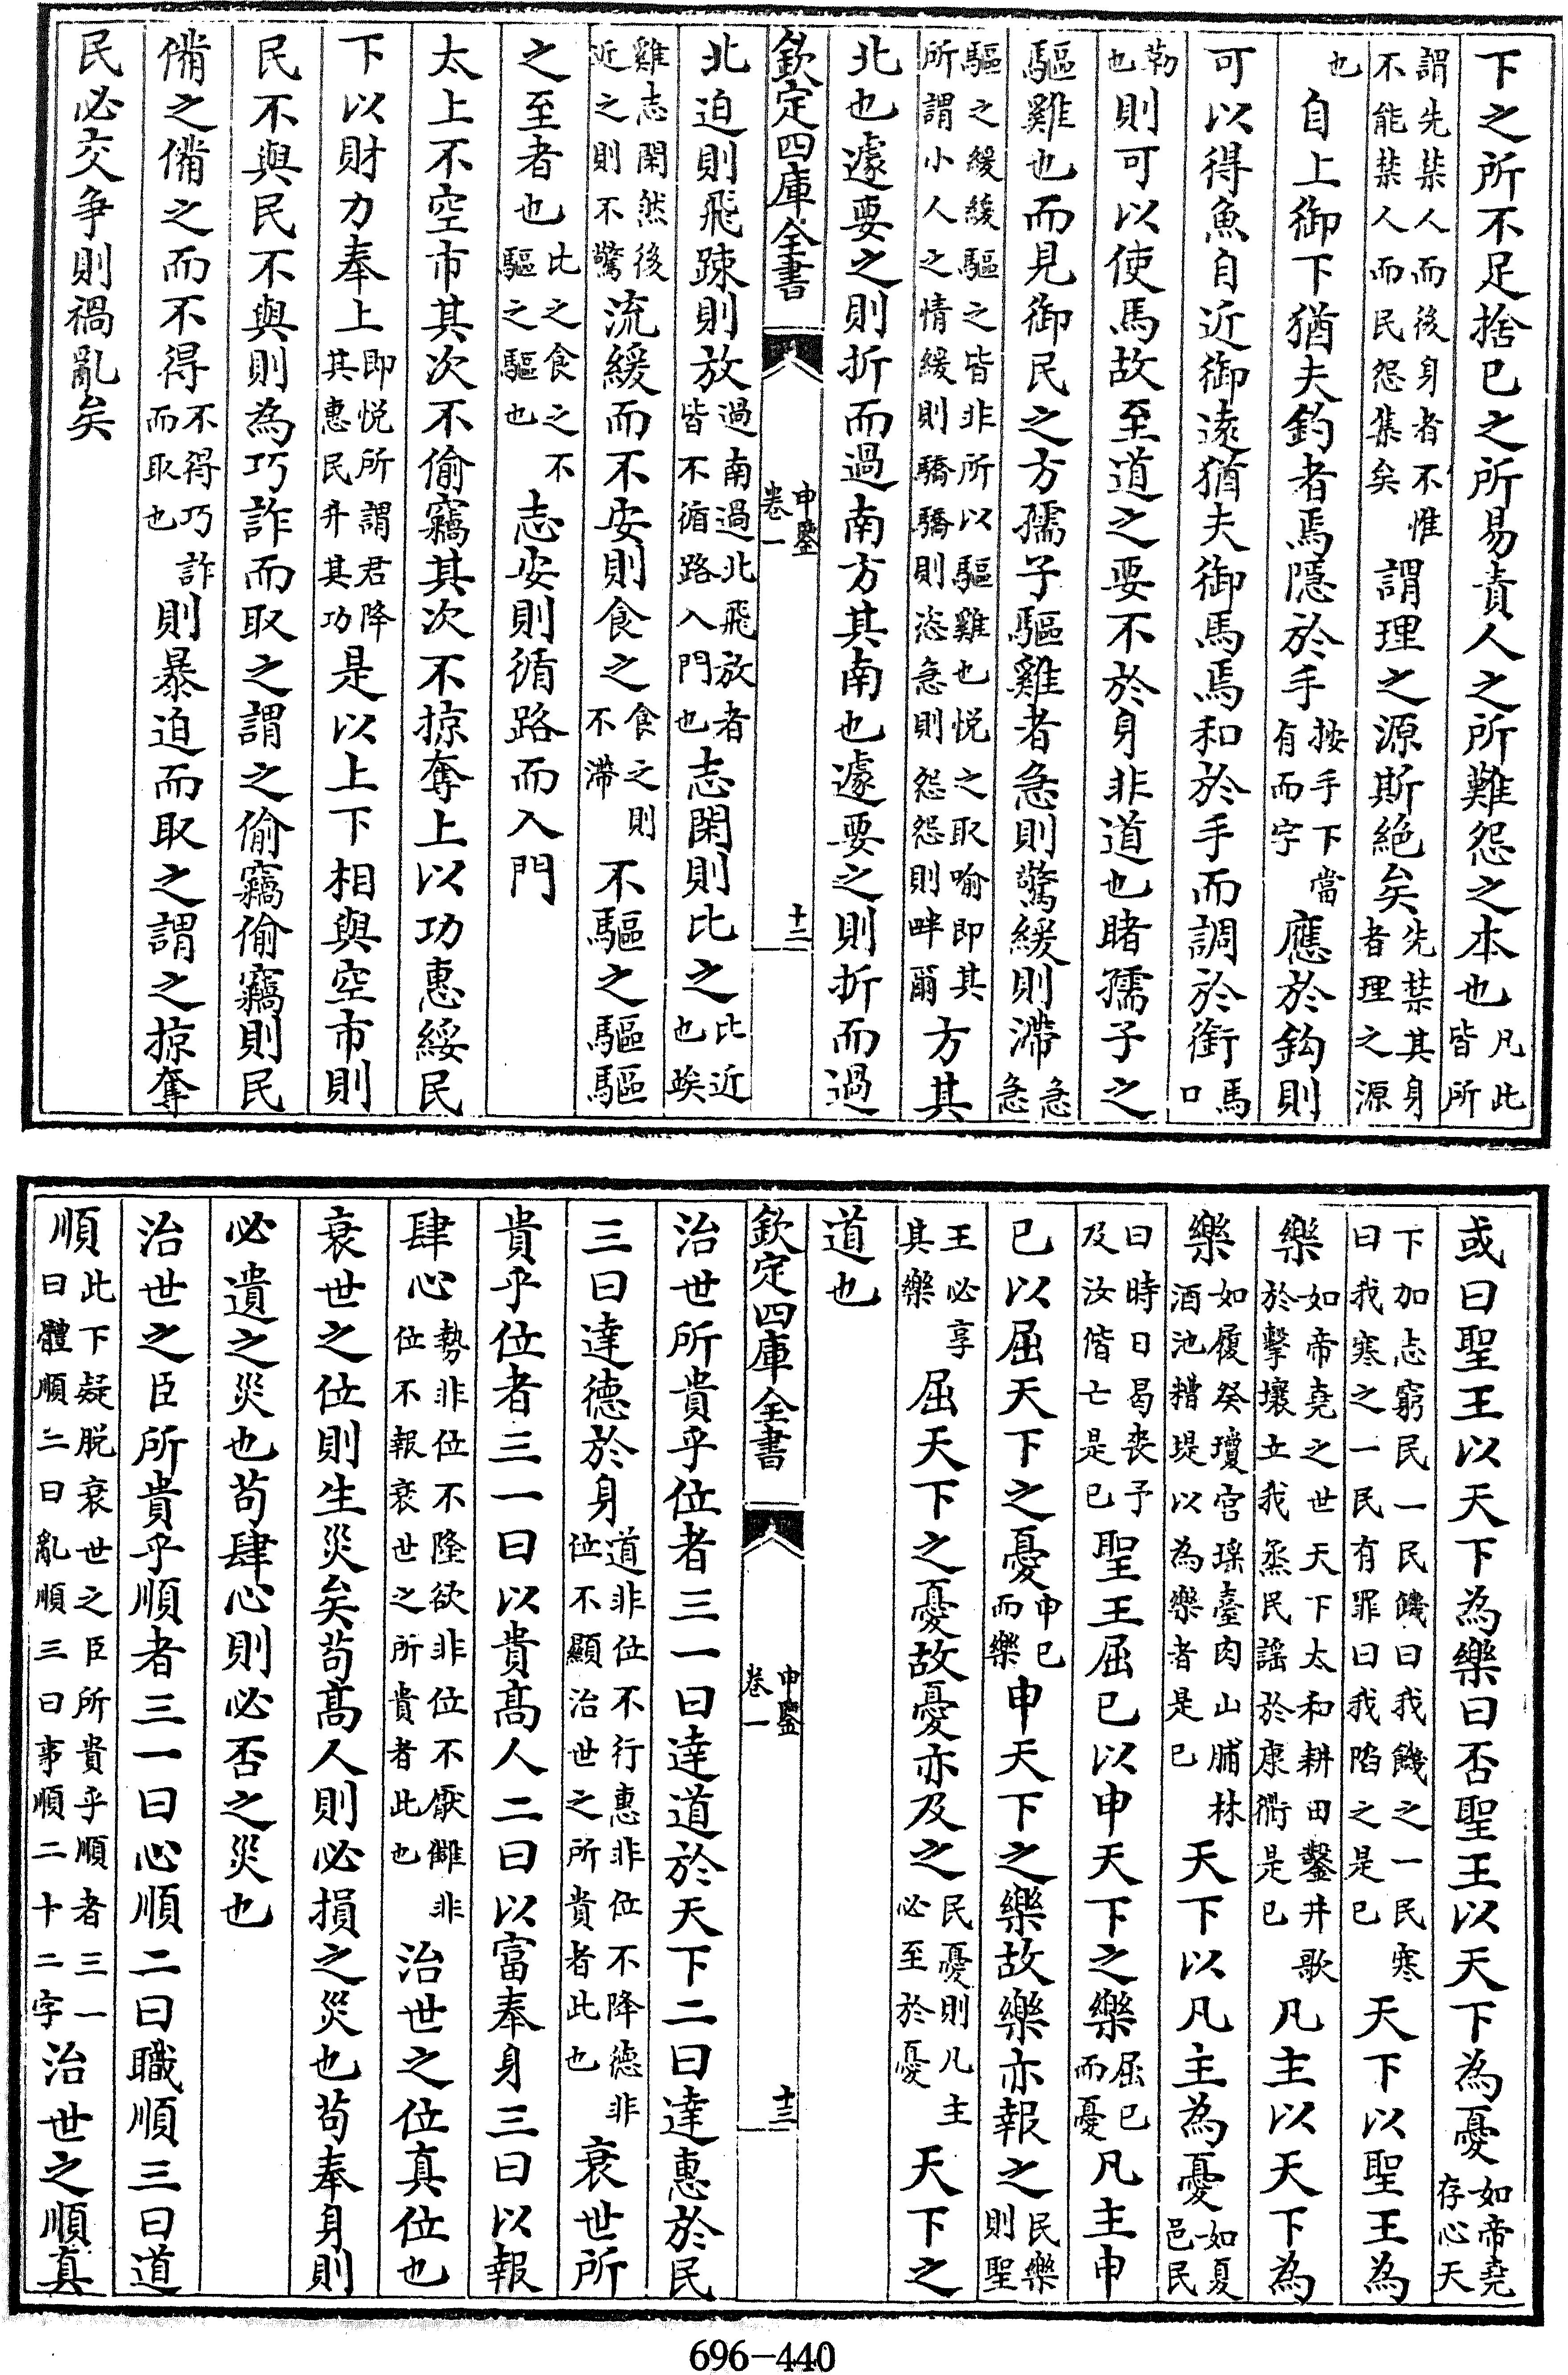 下之所不足捨已之所易責人之所難怨之本也凡此皆所
謂先禁人而後身者不惟不能禁人而民怨集矣謂理之源斯絶矣先禁其身者理之源
也自上御下猶夫釣者焉隱於手按手下當有而字應於鈎則
可以得魚自近御遠猶夫御馬焉和於手而調於銜馬口
勒也則可以使馬故至道之要不於身非道也睹孺子之
驅雞也而見御民之方孺子驅雞者急則驚緩則滯急急
驅之緩緩驅之皆非所以驅雞也悦之取喻即其所謂小人之情緩則驕驕則恣急則怨怨則畔爾方其
北也遽要之則折而過南方其南也遽要之則折而過
欽定四庫全書 申鑒 卷一 十二
北迫則飛踈則放過南過北飛放者皆不循路入門也志閑則比之比近也竢
雞志閑然後近之則不驚流緩而不安則食之食之則不滯不驅之驅驅
之至者也比之食之不驅之驅也志安則循路而入門
太上不空市其次不偷竊其次不掠奪上以功惠綏民
下以財力奉上即悦所謂君降其惠民升其功是以上下相與空市則
民不與民不與則為巧詐而取之謂之偷竊偷竊則民
備之備之而不得不得巧詐而取也則暴迫而取之謂之掠奪
民必交争則禍亂矣
或曰聖王以天下為樂曰否聖王以天下為憂如帝堯存心天
下加志窮民一民饑曰我饑之一民寒曰我寒之一民有罪曰我陷之是已天下以聖王為
樂如帝堯之世天下太和耕田鑿井歌於擊壤立我烝民謡於康衢是已凡主以天下為
樂如履癸瓊宫瑶臺肉山脯林酒池糟堤以為樂者是已天下以凡主為憂如夏邑民
曰時日曷喪予及汝偕亡是已聖王屈已以申天下之樂屈已而憂凡主申
已以屈天下之憂申已而樂申天下之樂故樂亦報之民樂則聖
王必享其樂屈天下之憂故憂亦及之民憂則凡主必至於憂天下之
道也
欽定四庫全書 申鑒 卷一 十三
治世所貴乎位者三一曰達道於天下二曰達惠於民
三曰達德於身道非位不行惠非位不降德非位不顯治世之所貴者此也衰世所
貴乎位者三一曰以貴高人二曰以富奉身三曰以報
肆心勢非位不隆欲非位不厭讎非位不報衰世之所貴者此也治世之位真位也
衰世之位則生災矣苟高人則必損之災也苟奉身則
必遺之災也苟肆心則必否之災也
治世之臣所貴乎順者三一曰心順二曰職順三曰道
順此下疑脱衰世之臣所貴乎順者三一曰體順二曰亂順三曰事順二十二字治世之順真
696-440